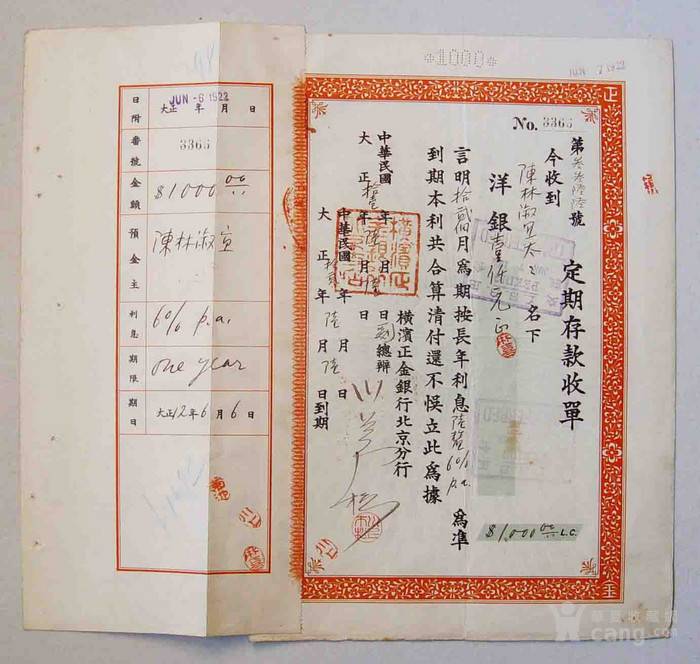 *1000*
JUN 7 1922
正
No. 3365
定期存款收單
第叁叁陸陸號
今收到
陳林淑宜太太 名下
洋銀壹仟元正
言明拾貳個月為期按長年利息陸釐6% p.a. 為準
到期本利共合算清付還不悮立此為據
中華民國 年 月 日
大正拾壹年陸月陸日
總辦
橫濱正金銀行北京分行
中華民國 年 月 日
大正拾貳年陸月陸日到期
$1,000 00 L.C.
金
日附
JUN -6 1922
大正 年 月 日
番號
3365
金額
$1000 00
預金主
陳林淑宜
利息
6% p.a.
期限
one year
期日
大正12年6月6日
華夏收藏網
cang.com